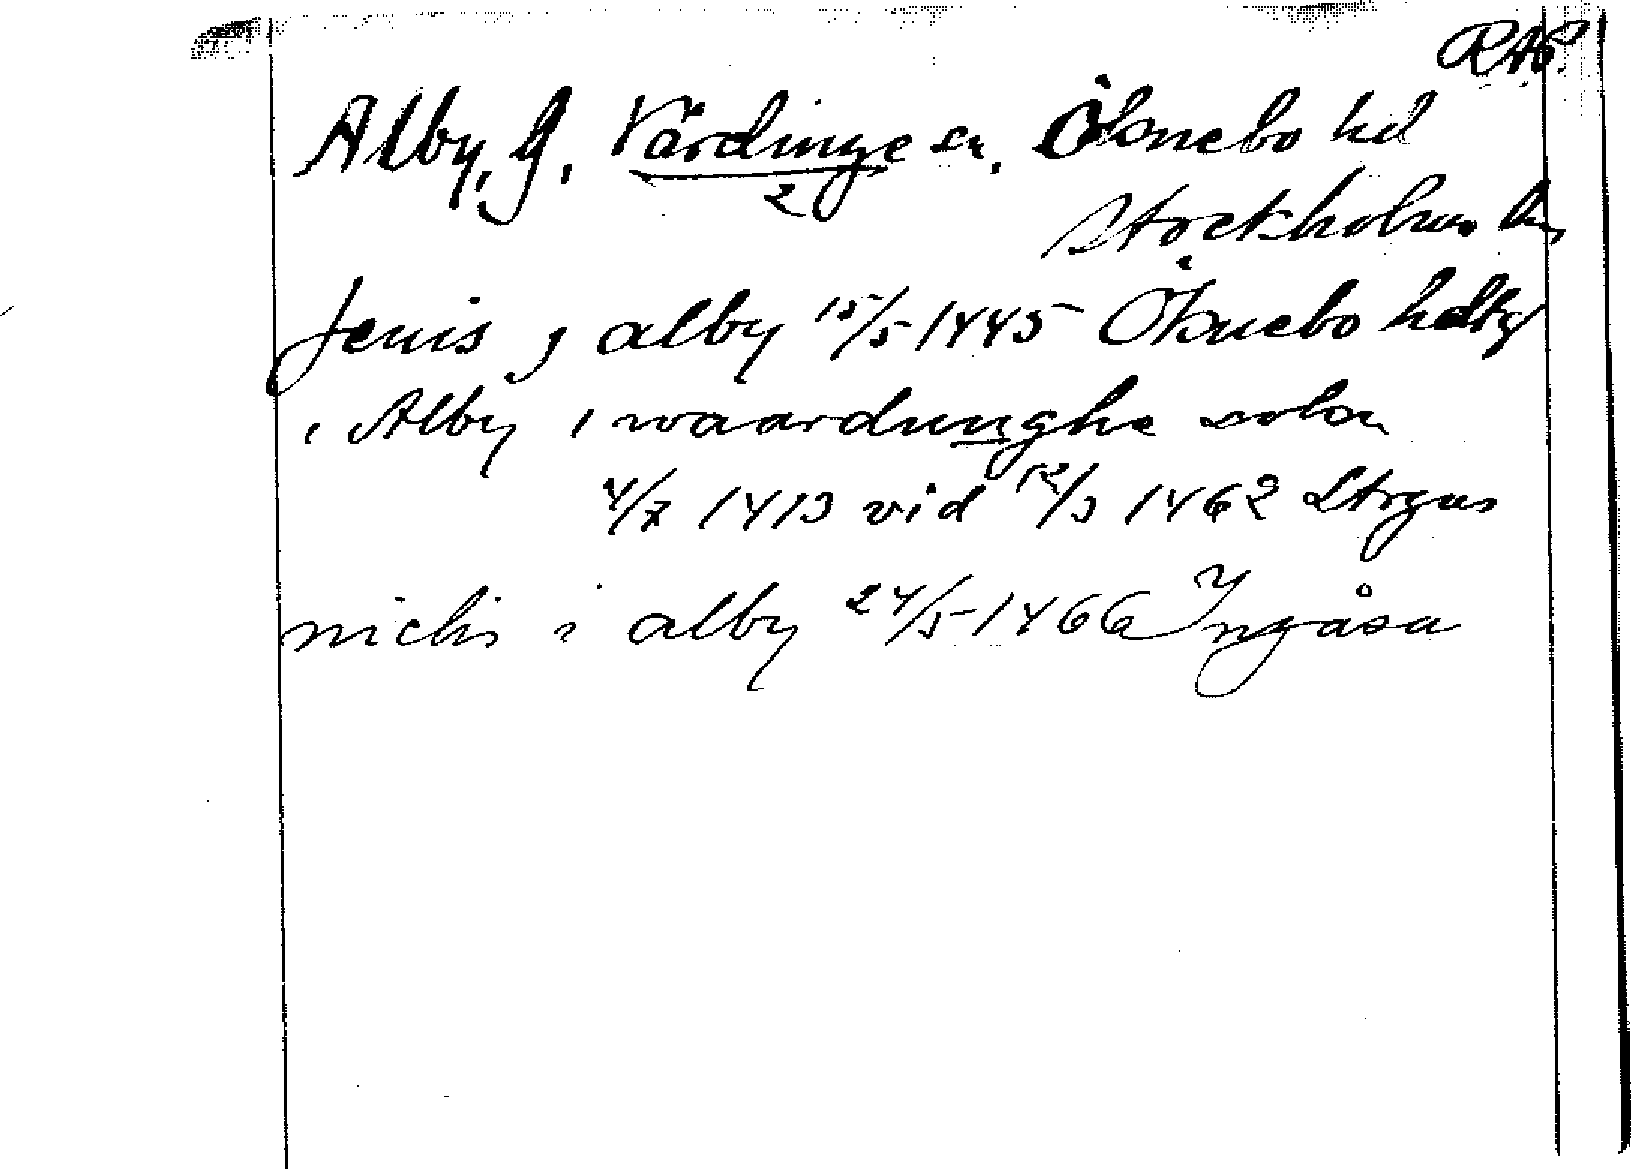 RAP.
Alby, g. Vårdinge sn. Öknebo hd
2
Stockholms län
Jenis j alby 15/5 1445 Öknebo hdtg
i Alby i waardunghe sokn
4/7 1413 vid 12/3 1462 Strgns
niclis i alby 24/5 1466 Yngåsa